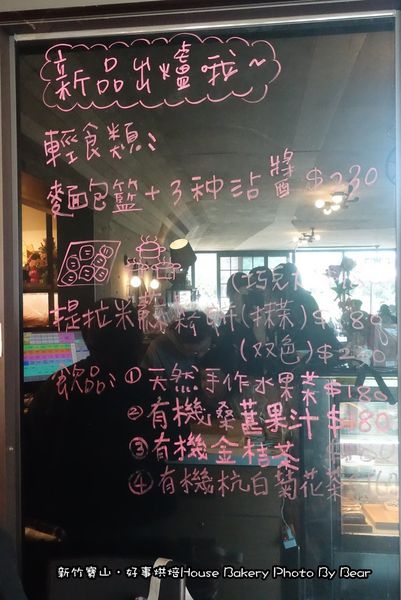 新品出爐哦~
輕食類:
麵包籃+3种沾醬 $230
(巧克
提拉米 鬆餅(抹茶) $180
(双色) $2
飲品: ①天然手作水果茶 $180
②有機桑葚果汁 $180
③有機金桔茶
④有機杭白菊花茶
新竹寶山‧好事烘焙House Bakery Photo By Bear